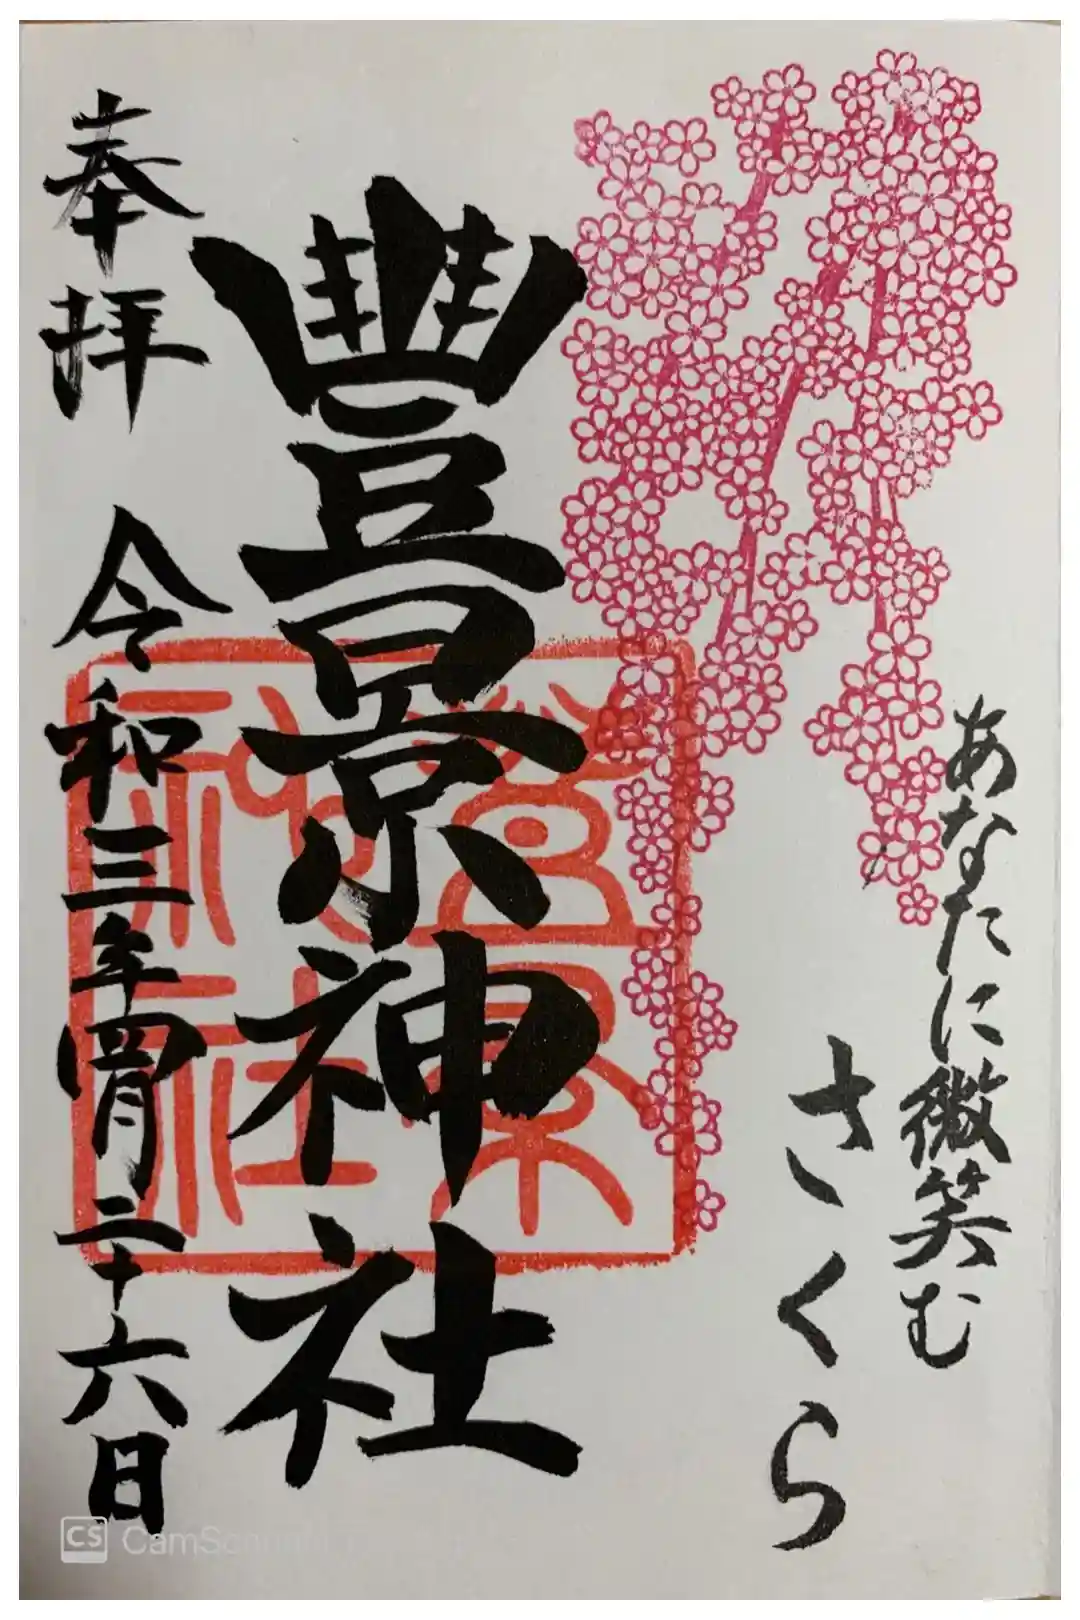 あなたに微笑む
さくら
豊景神社
豊景神社
奉拝 令和三年四月二十六日
CS CamScanner